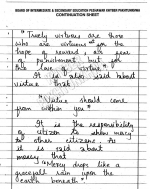 BOARD OF INTERMEDIATE & SECONDARY EDUCATION PESHAWAR KHYBER PAKHTUNKHWA
CONTINUATION SHEET
"Truely virtuous are those
who are virtuous not for the
hope of reward or fear
of punishment but for
the love of virtue."
It is also said about
virtue that
"Virtue should come
from within you"
It is the responsibility
of citizen to show mercy
to other citizens. As
it is said about
mercy that
"Mercy drops like a
gracefull rain upon the
earth beneath"